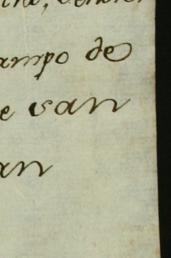 ampo de
e san
an